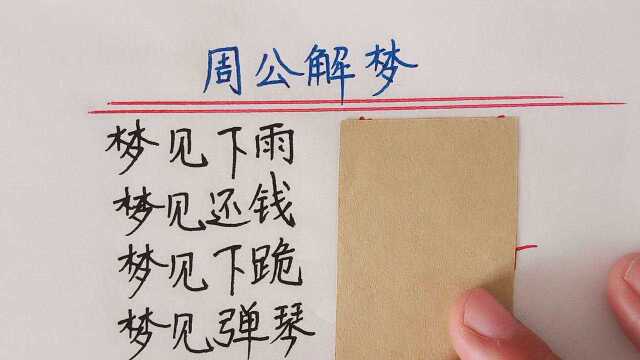 周公解梦
梦见下雨
梦见还钱
梦见下跪
梦见弹琴